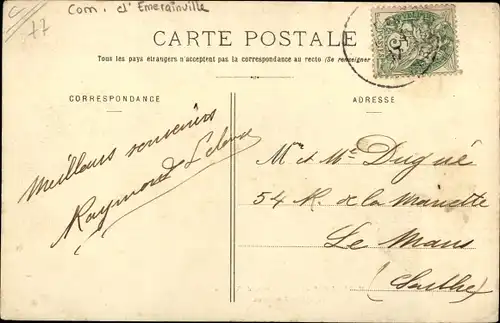 Com. d'Emerainville
77
CARTE POSTALE
Tous les pays étrangers n'acceptent pas la correspondance au recto (Se renseigner
CORRESPONDANCE
ADRESSE
Meilleurs souvenirs
Raymond
M. et Mme Dugué
54 R. de la Mariette
Le Mans
(Sarthe)